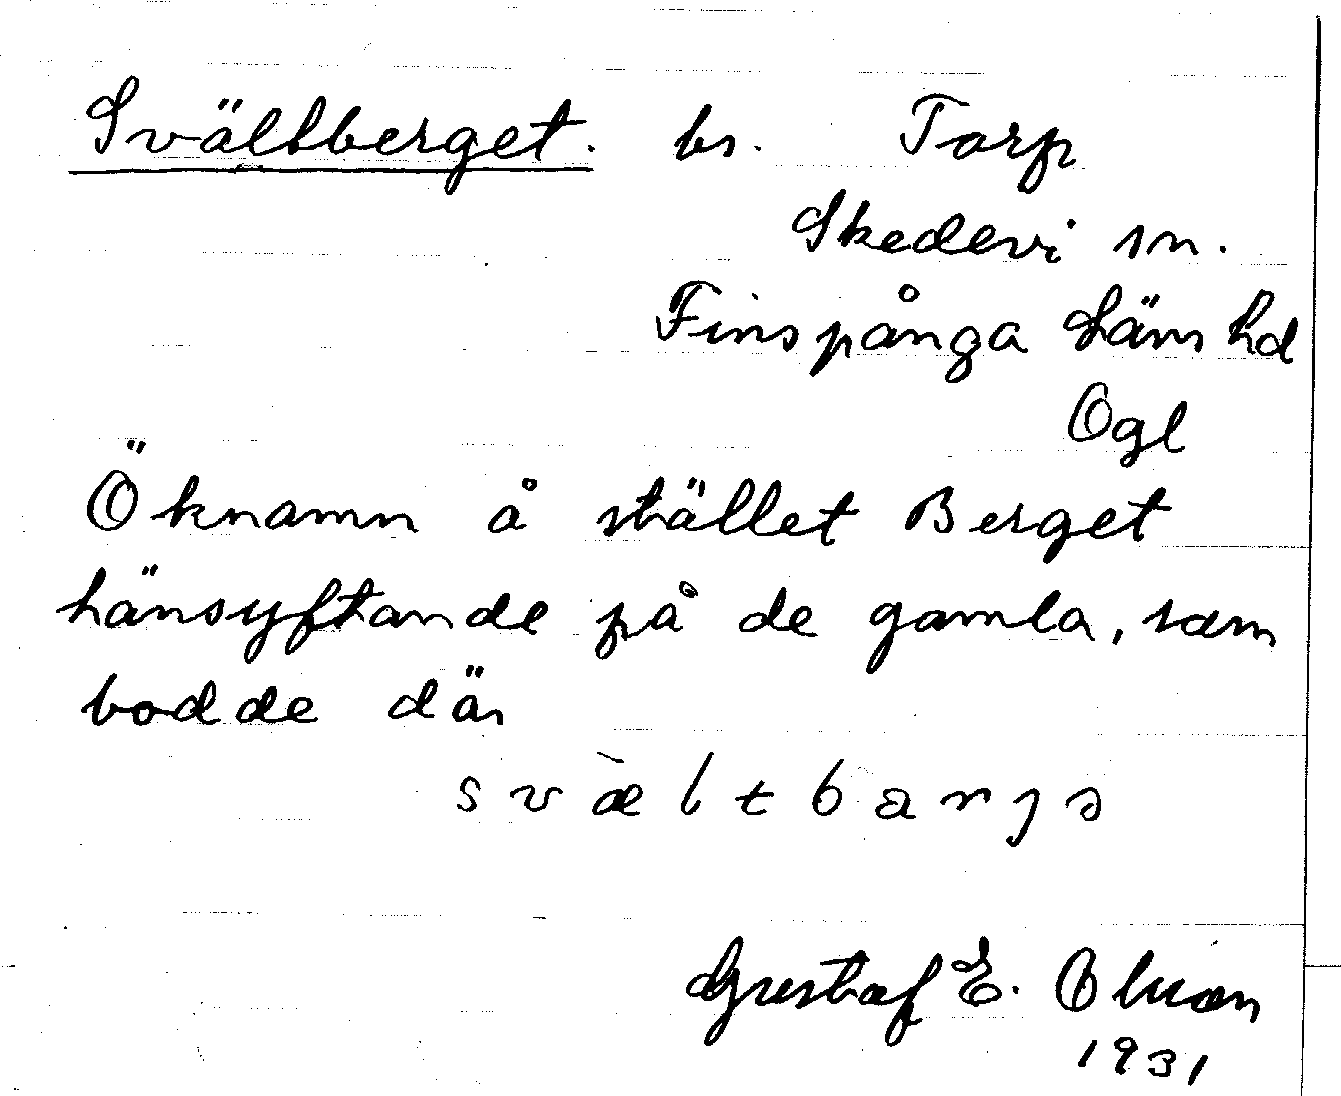 Svältberget. bs. Torp
Skedevi sn.
Finspånga läns hd
Ögl
Öknamn å stället Berget
hänsyftande på de gamla, som
bodde där
svæ̀ltbarjə
Gustaf E. Olsson
1931